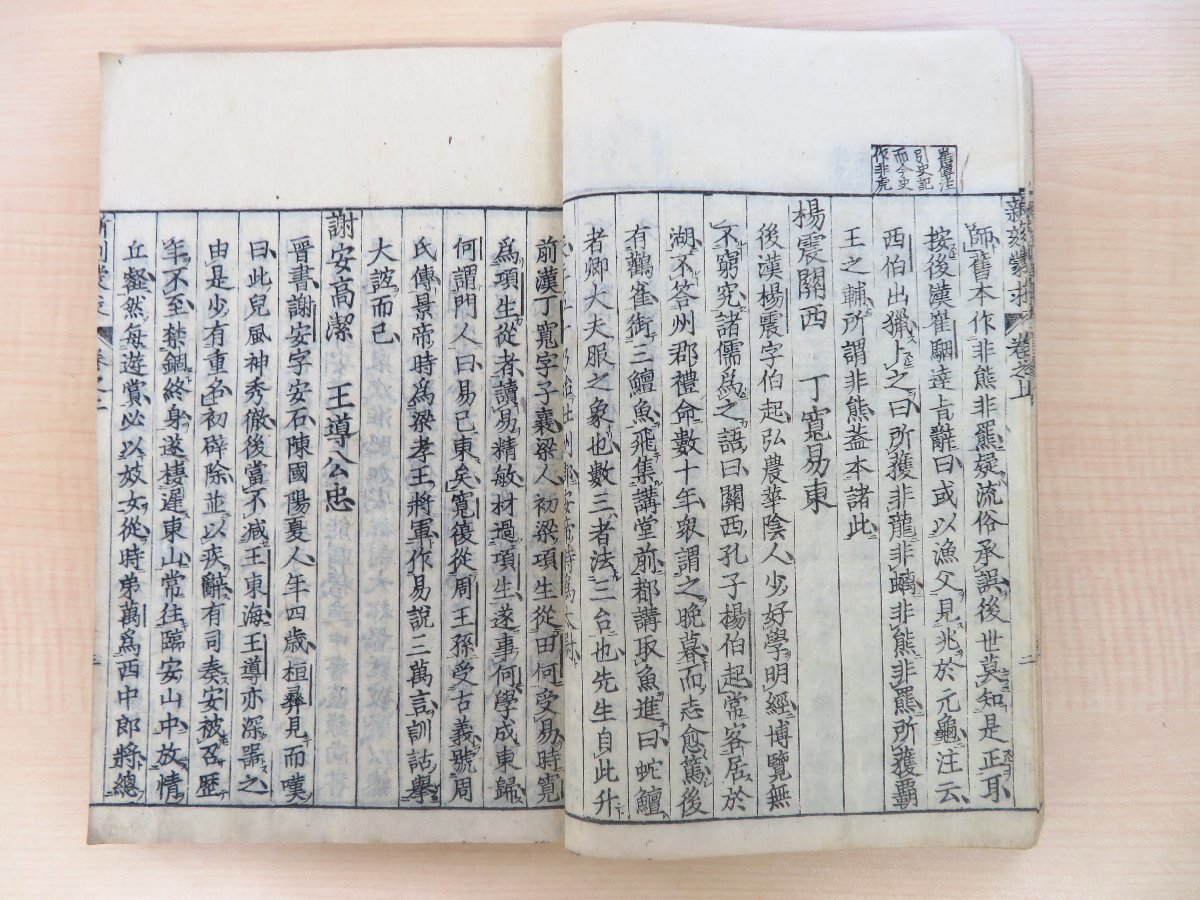 崔傳注
引史記
而今史
作非虎
新刻蒙求 卷之上
師舊本作非熊非羆疑流俗承誤後世莫知是正耳
按後漢崔駰達旨辭曰或以漁父見兆於元龜注云
西伯出獵卜之曰所獲非龍非螭非熊非羆所獲霸
王之輔所謂非熊蓋本諸此
楊震關西 丁寬易東
後漢楊震字伯起弘農華陰人少好學明經博覽無
不窮究諸儒爲之語曰關西孔子楊伯起常客居於
湖不答州郡禮命數十年衆謂之晚暮而志愈篤後
有鸛雀銜三鱣魚飛集講堂前都講取魚進曰蛇鱣
者卿大夫服之象也數三者法三台也先生自此升
前漢丁寬字子襄梁人初梁項生從田何受易時寬
爲項生從者讀易精敏材過項生遂事何學成東歸
何謂門人曰易已東矣寬復從周王孫受古義號周
氏傳景帝時爲梁孝王將軍作易說三萬言訓詁舉
大誼而已
謝安高潔 王導公忠
晉書謝安字安石陳國陽夏人年四歲桓彝見而嘆
曰此兒風神秀徹後當不減王東海王導亦深器之
由是少有重名初辟除並以疾辭有司奏安被召歷
年不至禁錮終身遂棲遲東山常往臨安山中放情
丘壑然每遊賞必以妓女從時弟萬爲西中郎將總